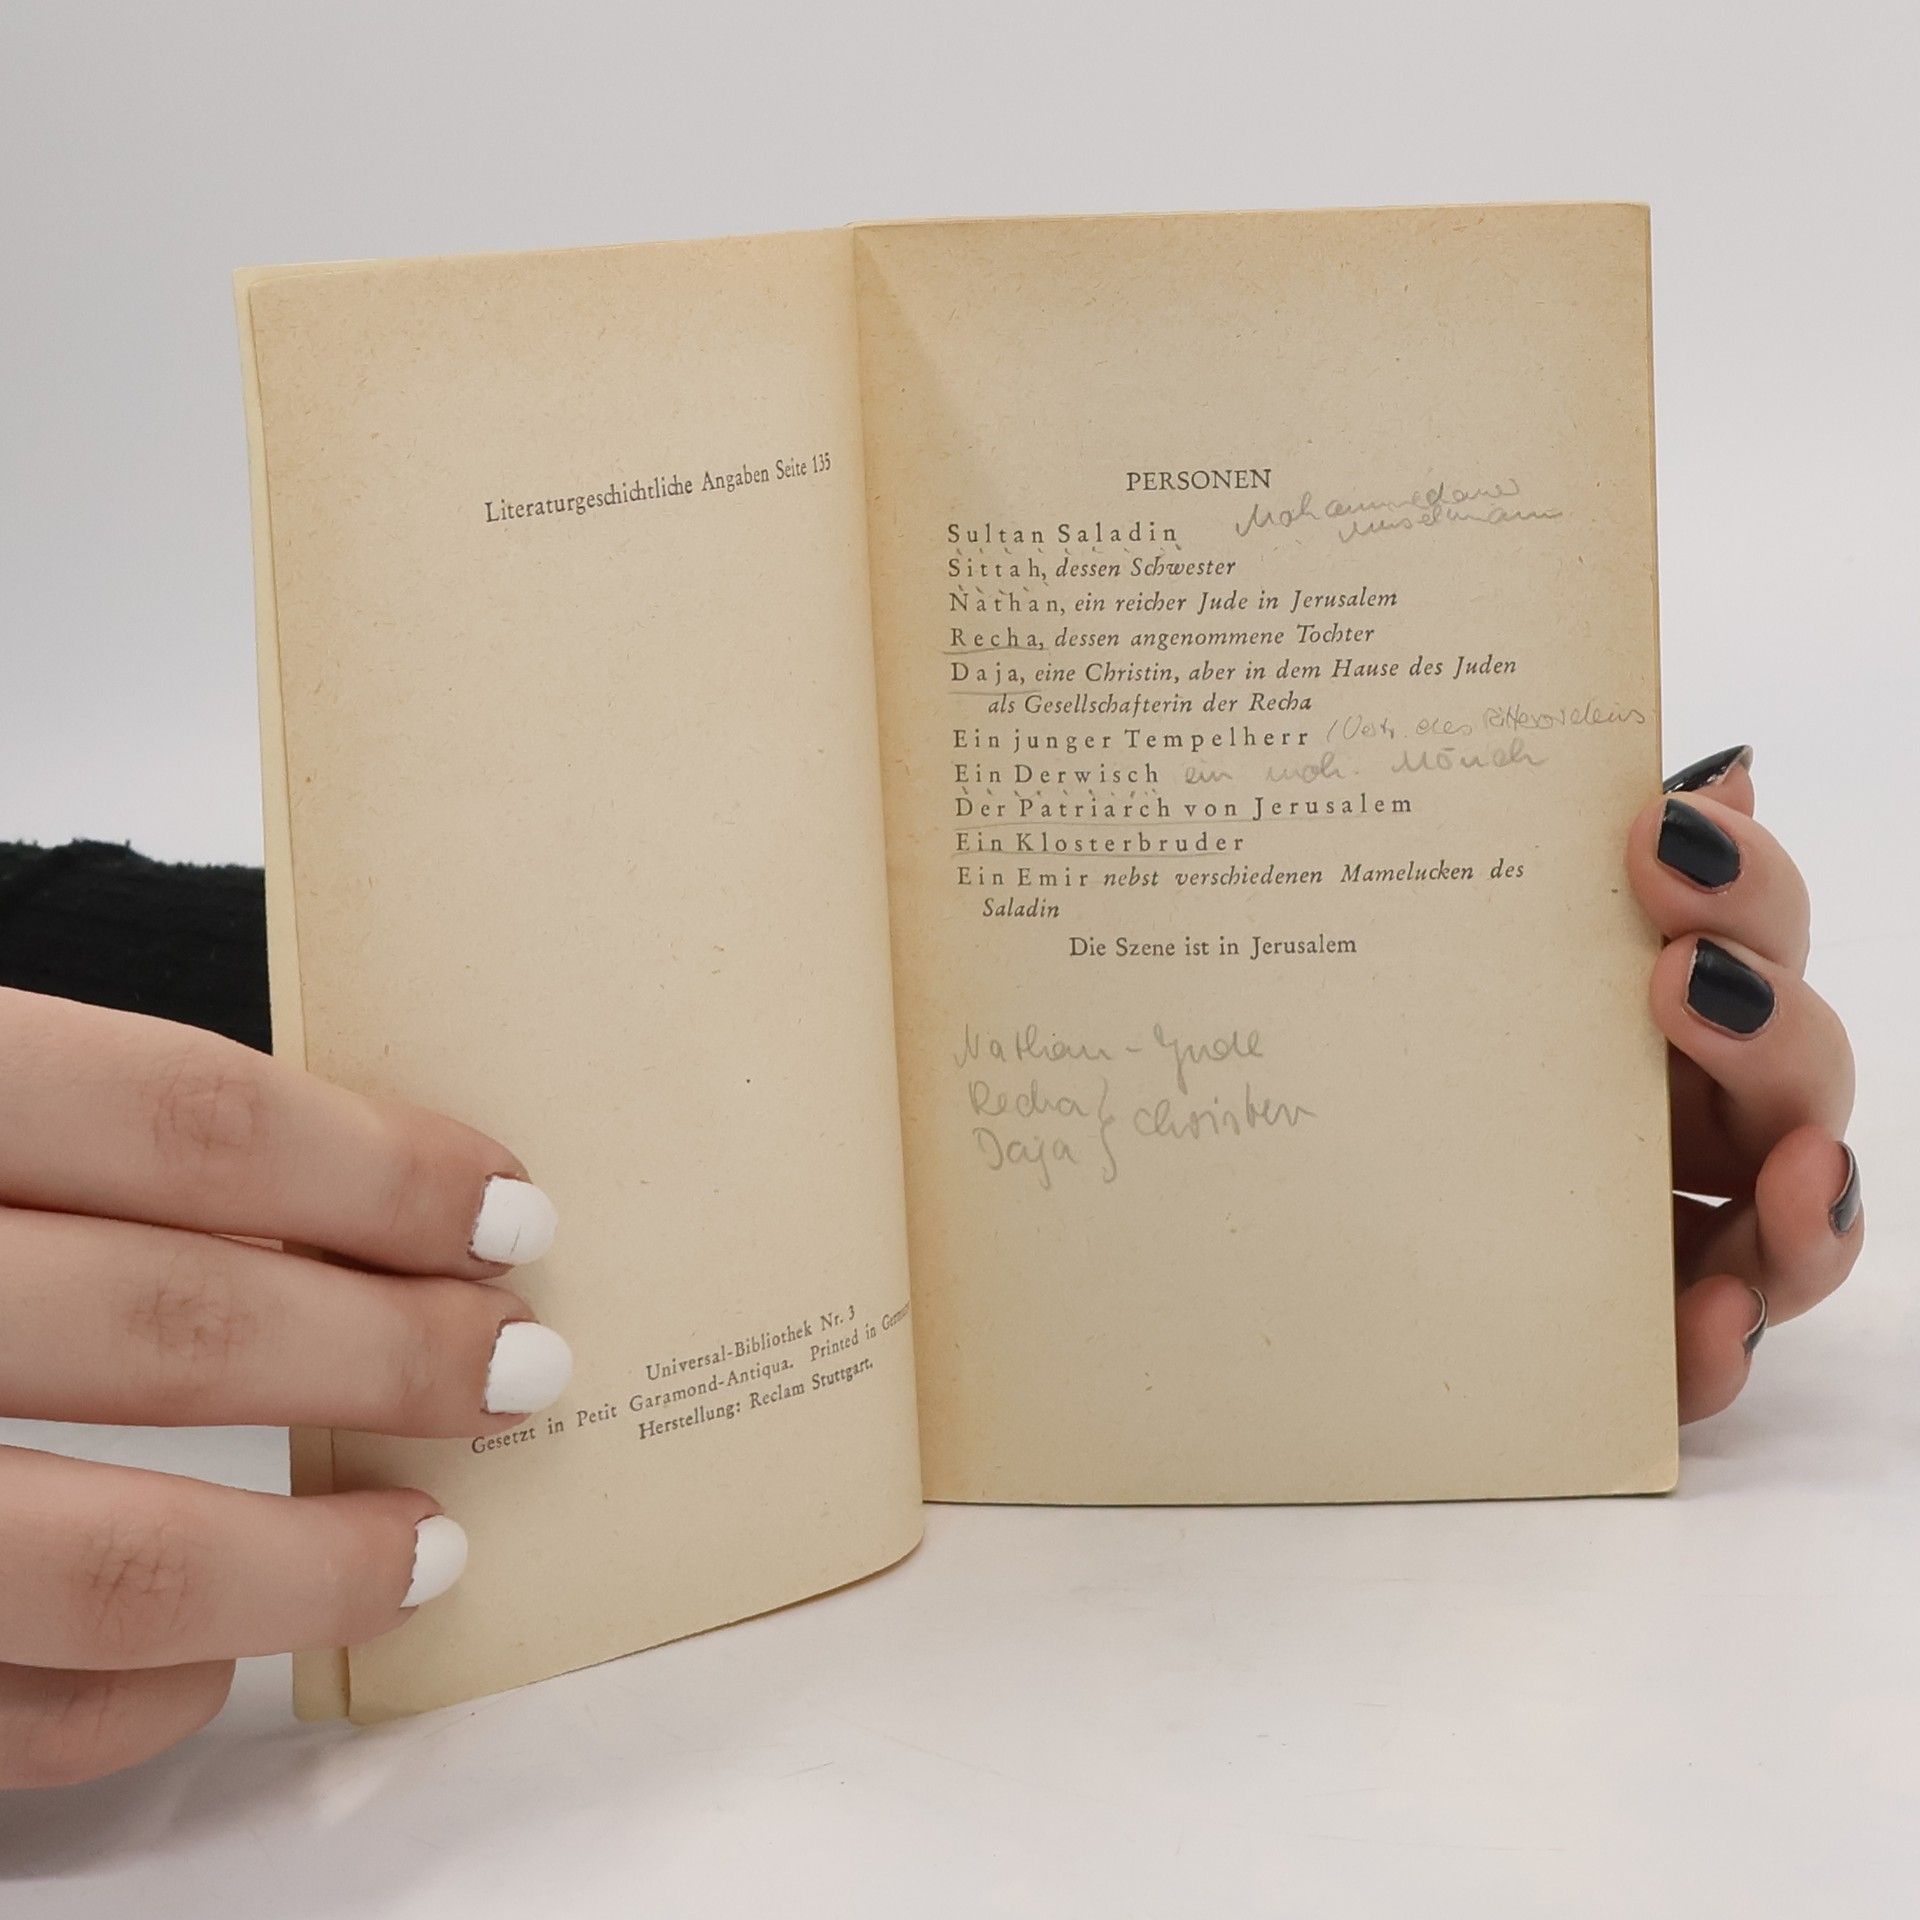 Literaturgeschichtliche Angaben Seite 135
Universal-Bibliothek Nr. 3
Gesetzt in Petit Garamond-Antiqua. Printed in
Herstellung: Reclam Stuttgart.
PERSONEN
Mohammedaner
Muselmann
Sultan Saladin
Sittah, dessen Schwester
Nathan, ein reicher Jude in Jerusalem
Recha, dessen angenommene Tochter
Daja, eine Christin, aber in dem Hause des Juden
als Gesellschafterin der Recha
Ein junger Tempelherr des Ritterordens
Ein Derwisch ein moh. Mönch
Der Patriarch von Jerusalem
Ein Klosterbruder
Ein Emir nebst verschiedenen Mamelucken des
Saladin
Die Szene ist in Jerusalem
Nathan - Jude
Recha } Christen
Daja